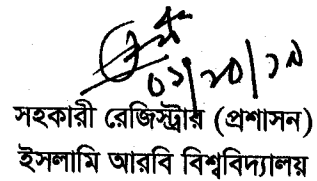 ০১/১০/১৯
সহকারী রেজিস্ট্রার (প্রশাসন)
ইসলামি আরবি বিশ্ববিদ্যালয়